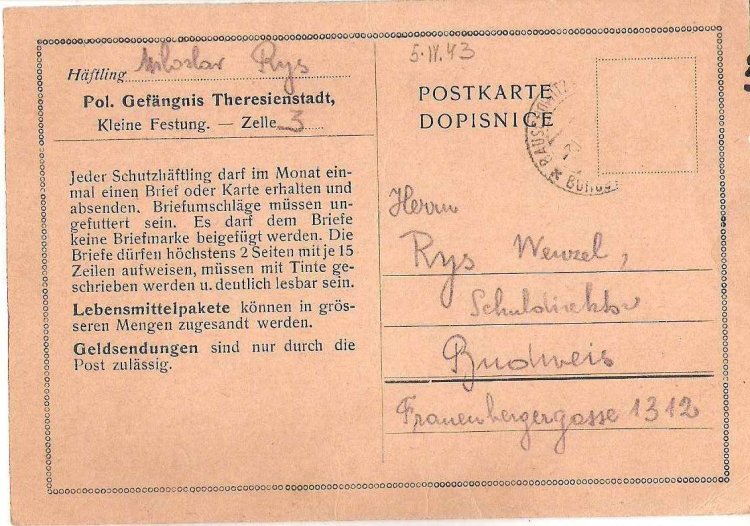 Häftling Miloslav Rys
Pol. Gefängnis Theresienstadt,
Kleine Festung. — Zelle 3
Jeder Schutzhäftling darf im Monat ein-
mal einen Brief oder Karte erhalten und
absenden. Briefumschläge müssen un-
gefuttert sein. Es darf dem Briefe
keine Briefmarke beigefügt werden. Die
Briefe dürfen höchstens 2 Seiten mit je 15
Zeilen aufweisen, müssen mit Tinte ge-
schrieben werden u. deutlich lesbar sein.
Lebensmittelpakete können in grös-
seren Mengen zugesandt werden.
Geldsendungen sind nur durch die
Post zulässig.
POSTKARTE
DOPISNICE
Herrn
Rys Wenzel,
Schuldirektor
Budweis
Frauenbergergasse 1312